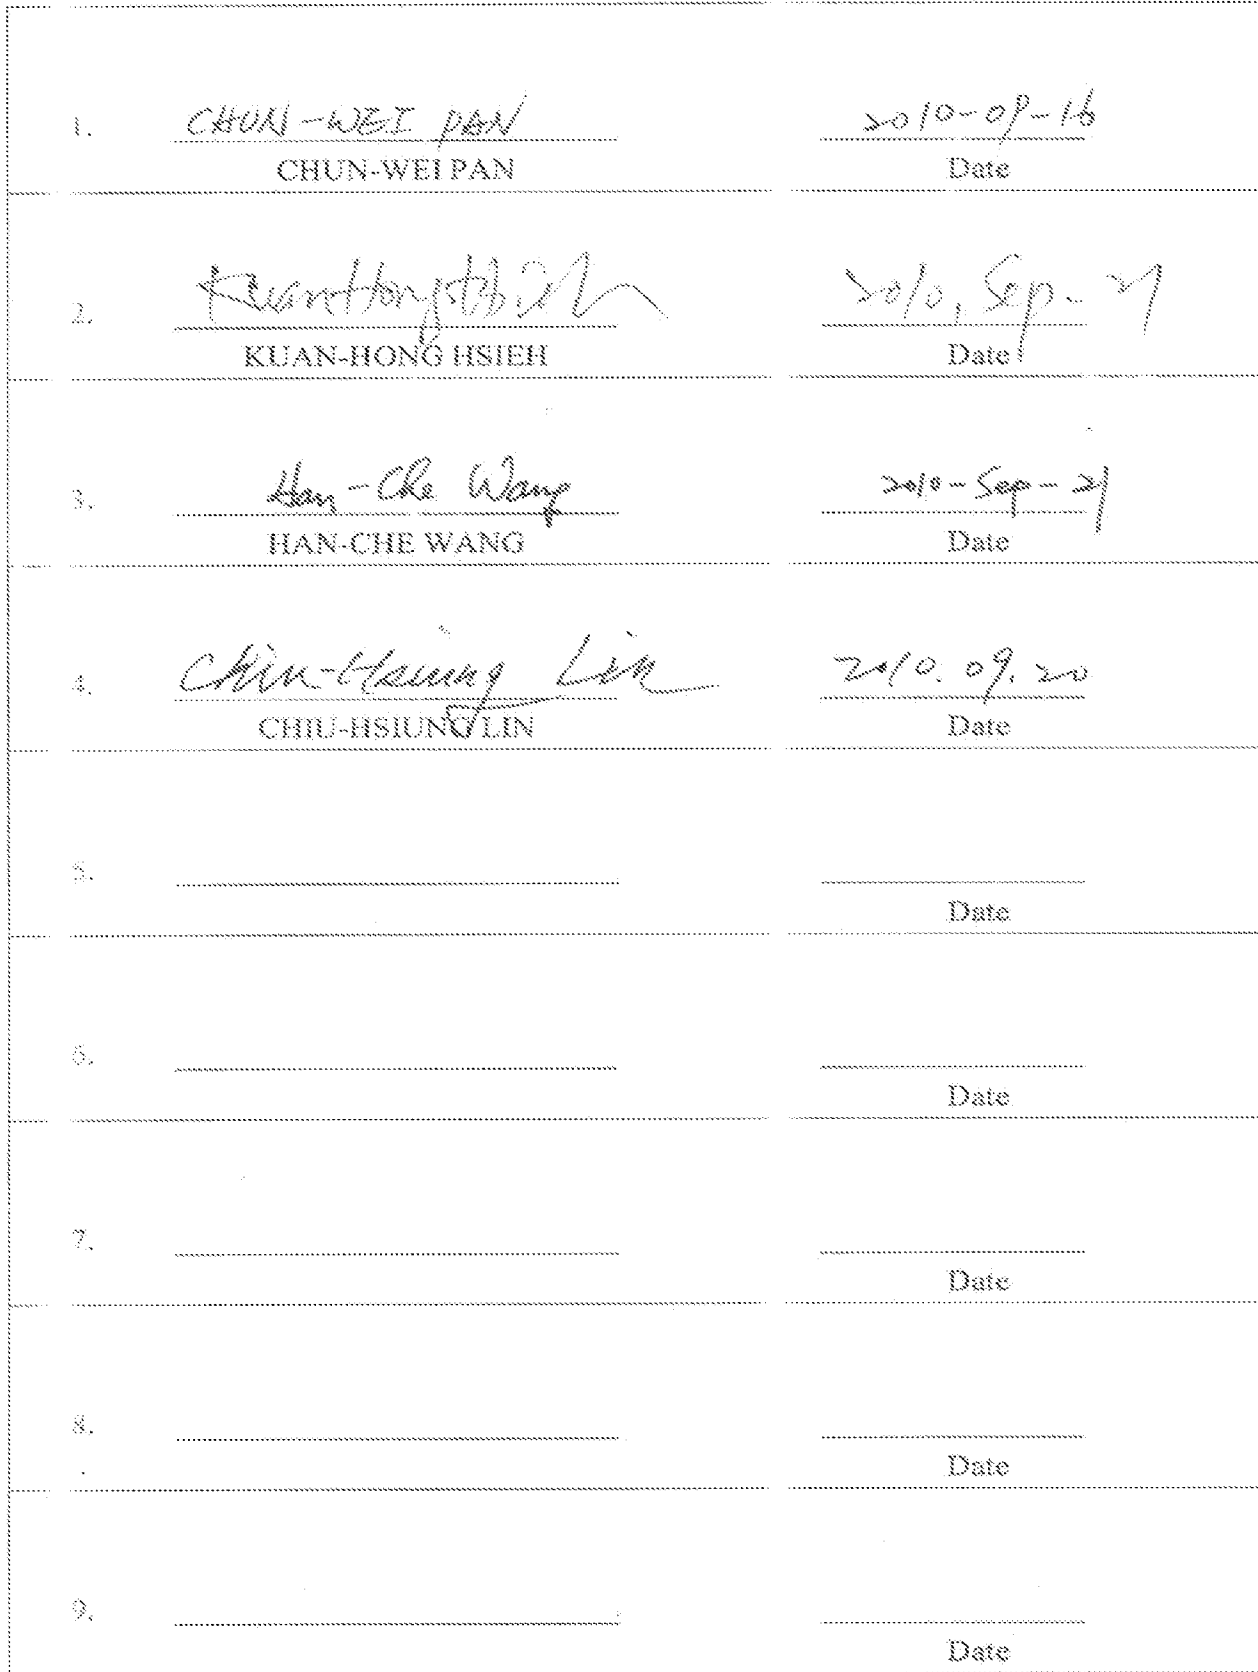 1. CHUN-WEI PAN 2010-09-16
CHUN-WEI PAN Date
2. Kuan Hong Hsieh 2010, Sep - 21
KUAN-HONG HSIEH Date
3. Han-Che Wang 2010-Sep-21
HAN-CHE WANG Date
4. Chiu-Hsiung Lin 2010.09.20
CHIU-HSIUNG LIN Date
5.
Date
6.
Date
7.
Date
8.
Date
9.
Date